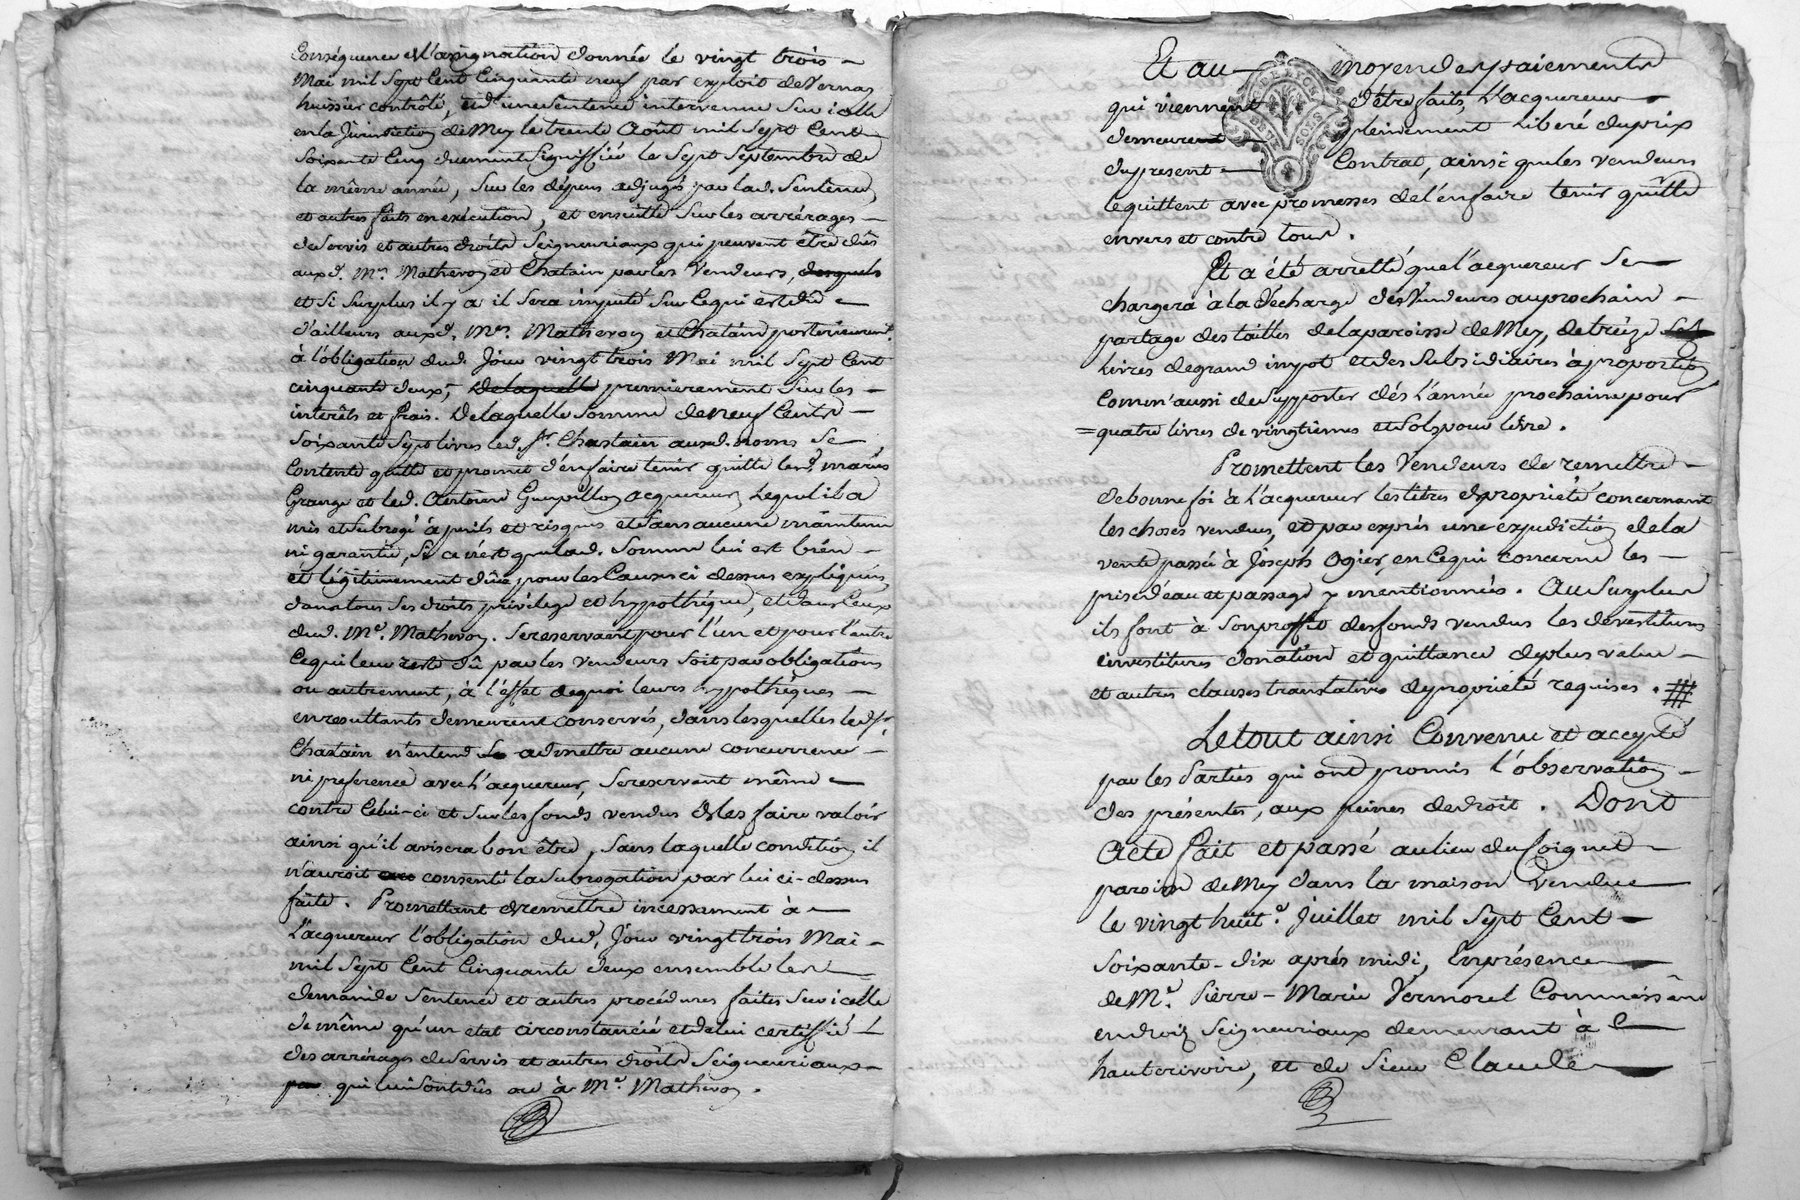 Conséquence et l'assignation donnée le vingt trois
Mai mil Sept Cent Cinquante neuf par exploit de Vernay
huissier contrôlé, une Sentence intervenue Sur icelle
en la Jurisdiction de Mey le trente Août mil Sept Cent
Soixante Cinq duement Signiffiée le Sept Septembre de
la même année, Sur les dépens adjugés par lad. Sentence,
et autres faits en exécution, et ensuitte Sur les arrérages
de Servis et autres droits Seigneuriaux qui peuvent être dûs
auxd. Mrs Mathevon et Chatain par les Vendeurs, desquels
et Si Surplus il y a il Sera imputé Sur Ce qui est dû
d'ailleurs auxd. Mrs Mathevon et Chatain postérieurement
à l'obligation dud. Jour vingt trois Mai mil Sept Cent
cinquante deux, De laquelle premierement Sur les
interêts et frais. De laquelle Somme de neuf Cents
Soixante Sept livres led. Sr. Chastain auxd. noms Se
Contente quitte et promet d'en faire tenir quitte led. mariés
Grange et led. Antoine Guepillon acquereur, Lequel il a
mis et Subrogé à perils et risques et Sans aucune maintenue
ni garantie, Si ce n'est que lad. Somme lui est bien
et légitimement dûe, pour les Causes ci dessus expliquées,
dans tous Ses droits privilege et hyppothéque, et dans Ceux
dud. Me. Mathevon. Se reservant pour l'un et pour l'autre
Ce qui leur reste dû par les Vendeurs Soit par obligations
ou autrement, à l'effet de quoi leurs hyppothéques
en resultants demeurent conservés, dans lesquelles led. Sr.
Chatain n'entend Se admettre aucune concurrence
ni preference avec l'acquereur, Se reservant même
contre Celui-ci et Sur les fonds vendus de les faire valoir
ainsi qu'il avisera bon être, Sans laquelle condition il
n'auroit consenti la Subrogation par lui ci-dessus
faite. Promettant de remettre incessament à
L'acquereur l'obligation dud. Jour vingt trois Mai
mil Sept Cent Cinquante deux ensemble les
demande Sentence et autres procédures faites Sur icelle
de même qu'un etat circonstancié et de lui certiffié
des arrérages de Servis et autres droits Seigneuriaux
qui lui Sont dûs ou à Me. Mathevon.
Et au moyen des paiements
qui viennent d'être faits, L'acquereur
demeure pleinement Liberé du prix
du present Contrat, ainsi que les vendeurs
le quittent avec promesses de l'en faire tenir quitte
envers et contre tous.
Et a été arretté que l'acquereur Se
chargera à la décharge des Vendeurs au prochain
partage des tailles de la paroisse de Mey, de treize
Livres de grand impot et des Subsidiaires à proportion
Comm'aussi de Supporter dès L'année prochaine pour
=quatre livres de vingtiemes et Sols pour livre.
Promettent les Vendeurs de remettre
de bonne foi à L'acquereur les titres de propriété concernant
les choses vendues, et par exprés une expedition de la
vente passée à Joseph Ogier, en Ce qui concerne les
prise d'eau et passage y mentionnés. Au Surplus
ils font à Son proffit des fonds vendus les devestitures
investitures donation et quittance de plus value
et autres clauses translatives de propriété requises. #
Le tout ainsi Convenu et accepté
par les Parties qui ont promis l'observation
des présentes, aux peines de droit. Dont
Acte fait et passé au lieu du Soignet
paroisse de Mey dans la maison Vendue
le vingt huit.e Juillet mil Sept Cent
Soixante-dix aprés midi, En présence
de Me. Pierre-Marie Vermorel Commissaire
en droits Seigneuriaux demeurant à
hauterivoire, et de Sieur Claude
GEN. DE LYON
DEUX SOLS